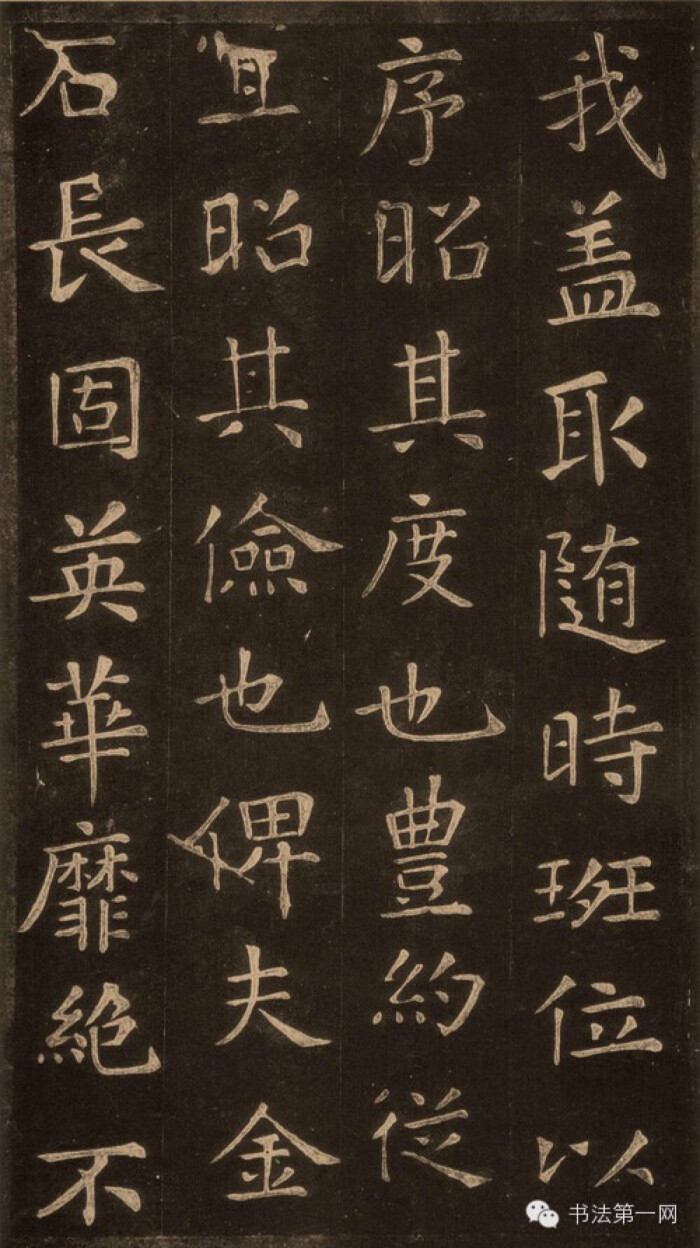 我盖取随時班位以
序昭其度也豊約從
宜昭其儉也俾夫金
石長固英華靡絶不
书法第一网